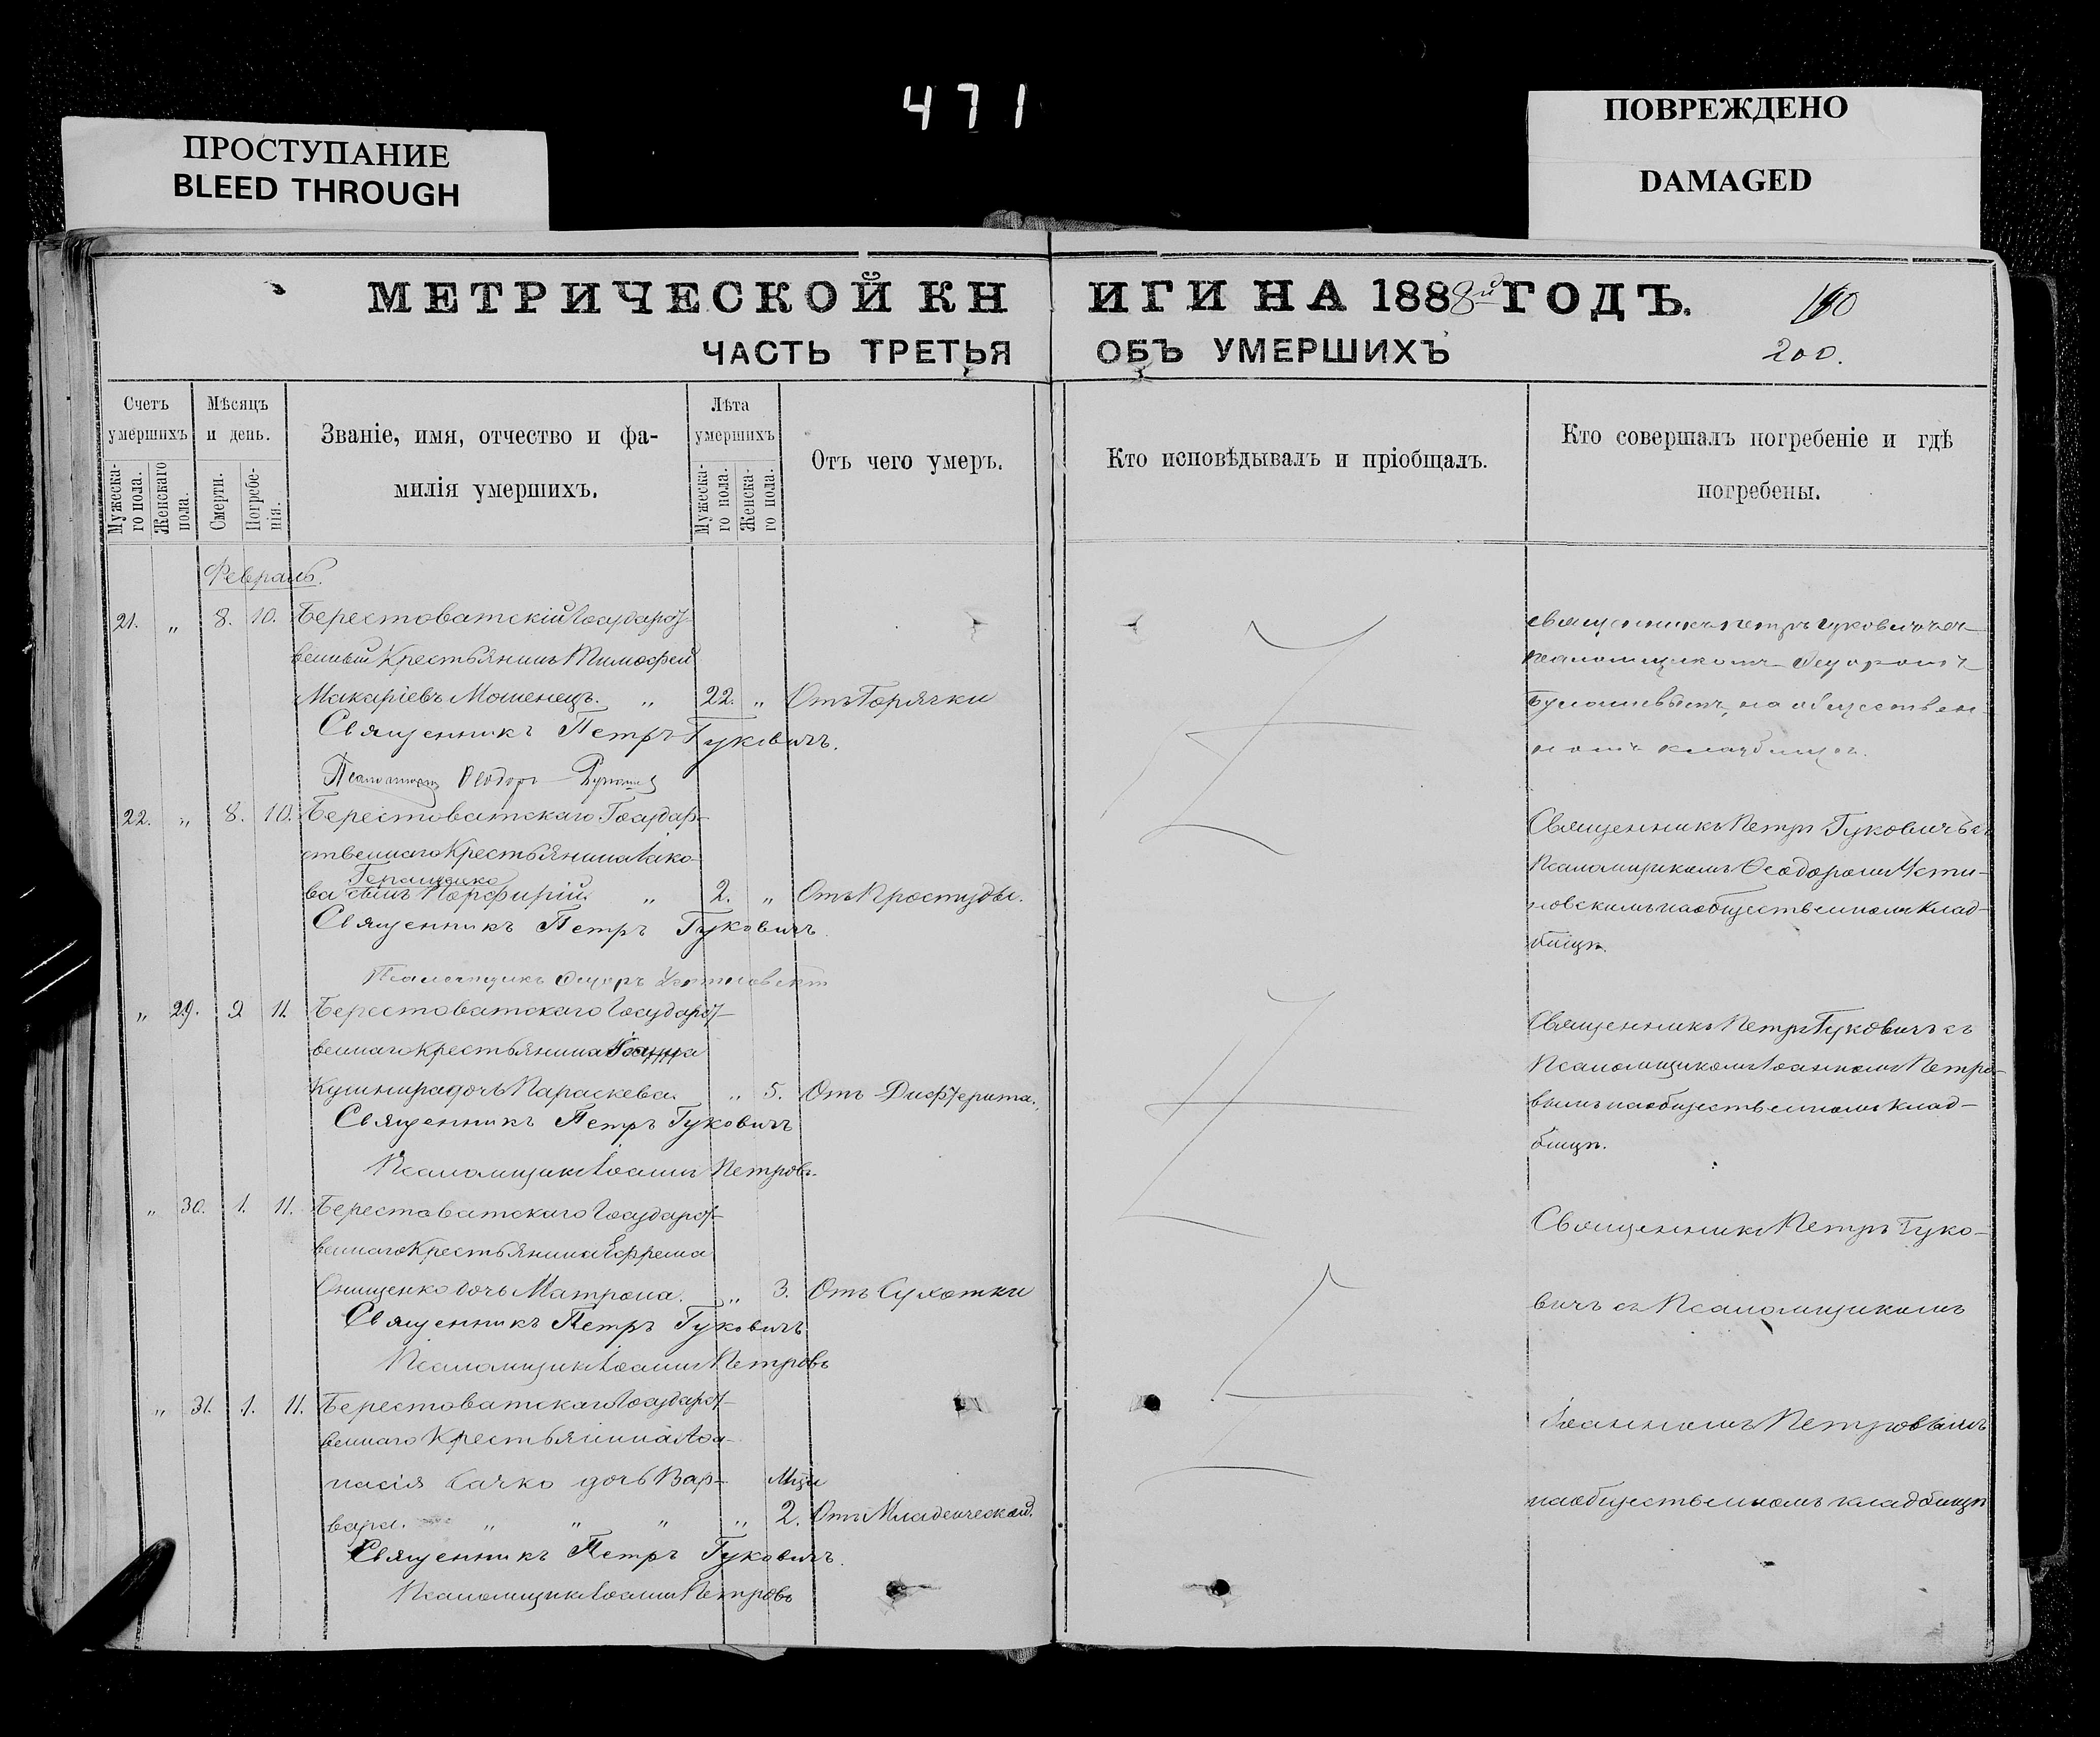 471
ПРОСТУПАНИЕ
BLEED THROUGH
ПОВРЕЖДЕНО
DAMAGED
МЕТРИЧЕСКОЙ КНИГИ НА 1888й ГОДЪ.
200.
ЧАСТЬ ТРЕТЬЯ ОБЪ УМЕРШИХЪ
Счетъ умершихъ
Мужеска-го пола.
Женскаго пола.
Мѣсяцъ и день.
Смерти.
Погребе-нія.
Званіе, имя, отчество и фа-
милія умершихъ.
Лѣта умершихъ
Мужеска-го пола.
Женска-го пола.
Отъ чего умеръ.
Кто исповѣдывалъ и пріобщалъ.
Кто совершалъ погребеніе и гдѣ
погребены.
Февраль.
21. „ 8. 10. Берестоватскій Государст-
венный Крестьянинъ Тимофей
Макаріевъ Мошенецъ. „ 22. „ Отъ Горячки
Священникъ Петръ Гуковичъ.
Псаломщикъ Ѳеодоръ
Священникъ Петръ Гуковичъ съ
Псаломщикомъ Ѳедоромъ
на обществен-
номъ кладбищѣ.
22. „ 8. 10. Берестоватскаго Государ-
ственнаго Крестьянина Іако-
ва Геращенко сынъ Порфирій. „ 2. „ Отъ Простуды.
Священникъ Петръ Гуковичъ
Псаломщикъ Ѳедоръ Устиновскій
Священникъ Петръ Гуковичъ съ
Псаломщикомъ Ѳеодоромъ Усти-
новскимъ на общественномъ клад-
бищѣ.
„ 29. 9 11. Берестоватскаго Государст-
веннаго Крестьянина
Кушнира дочь Параскева. „ 5. Отъ Дифтерита.
Священникъ Петръ Гуковичъ
Псаломщикъ Іоаннъ Петровъ.
Священникъ Петръ Гуковичъ съ
Псаломщикомъ Іоанномъ Петро-
вымъ на общественномъ клад-
бищѣ.
„ 30. 1. 11. Берестоватскаго Государст-
веннаго Крестьянина Ефрема
Онищенко дочь Матрона. „ 3. Отъ Сухотки
Священникъ Петръ Гуковичъ
Псаломщикъ Іоаннъ Петровъ
„ 31. 1. 11. Берестоватскаго Государст-
веннаго Крестьянина Аѳа-
насія Сачко дочь Вар-
вара. „ „ „ „ Мца 2. Отъ Младенческой.
Священникъ Петръ Гуковичъ.
Псаломщикъ Іоаннъ Петровъ
Священникъ Петръ Гуко-
вичъ съ Псаломщикомъ
Іоанномъ Петровымъ
на общественномъ кладбищѣ